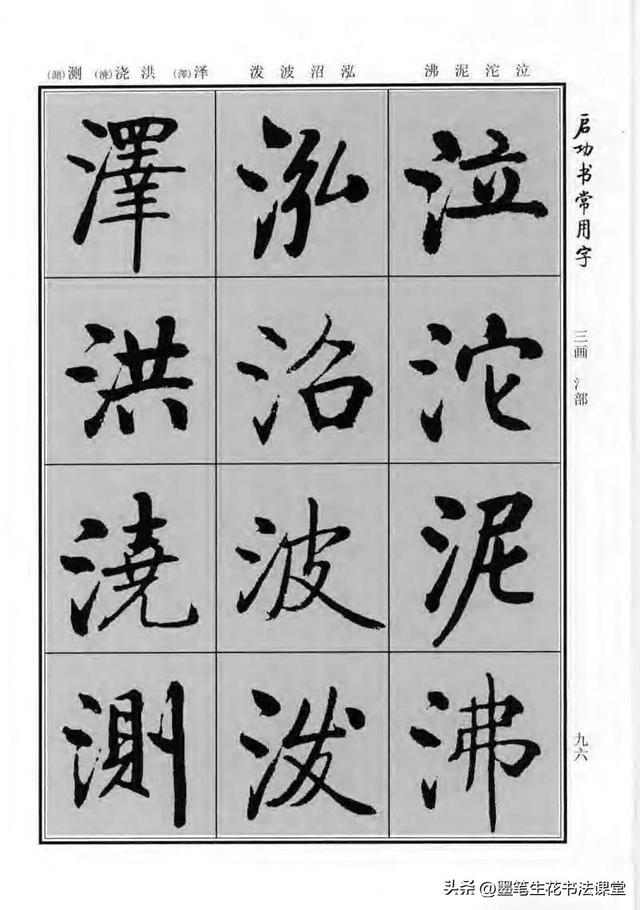 (測)测 (澆)浇洪 (澤)泽 泼波沼泓 沸泥沱泣
启功书常用字
三画 氵部
九六
泣沱泥沸
泓沼波泼
澤洪澆測
头条@墨笔生花书法课堂